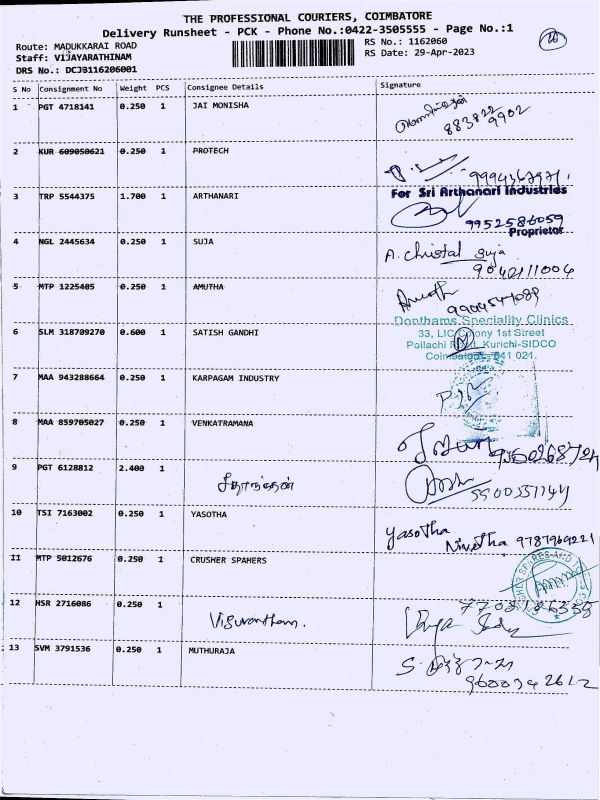 THE PROFESSIONAL COURIERS, COIMBATORE
Delivery Runsheet - PCK - Phone No.:0422-3505555 - Page No.:1
Route: MADUKKARAI ROAD
RS No.: 1162060
Staff: VIJAYARATHINAM
RS Date: 29-Apr-2023
DRS No.: DCJB116206001
S No Consignment No Weight PCS Consignee Details Signature
1 PGT 4718141 0.250 1 JAI MONISHA
883822
9902
2 KUR 609050621 0.250 1 PROTECH
For Sri Arthanari Industries
3 TRP 5544375 1.700 1 ARTHANARI
9952586059
Proprietor
4 NGL 2445634 0.250 1 SUJA
A. Christal Suja
9042111004
5 MTP 1225405 0.250 1 AMUTHA
Donthams Speciality Clinics
6 SLM 318709270 0.600 1 SATISH GANDHI
33, LIC Colony 1st Street
Pollachi Road, Kurichi-SIDCO
Coimbatore - 641 021.
7 MAA 943288664 0.250 1 KARPAGAM INDUSTRY
8 MAA 859705027 0.250 1 VENKATRAMANA
9 PGT 6128812 2.400 1
10 TSI 7163002 0.250 1 YASOTHA
Yasotha
Nivetha 9787969221
11 MTP 5012676 0.250 1 CRUSHER SPAHERS
12 HSR 2716086 0.250 1
13 SVM 3791536 0.250 1 MUTHURAJA
9600342612